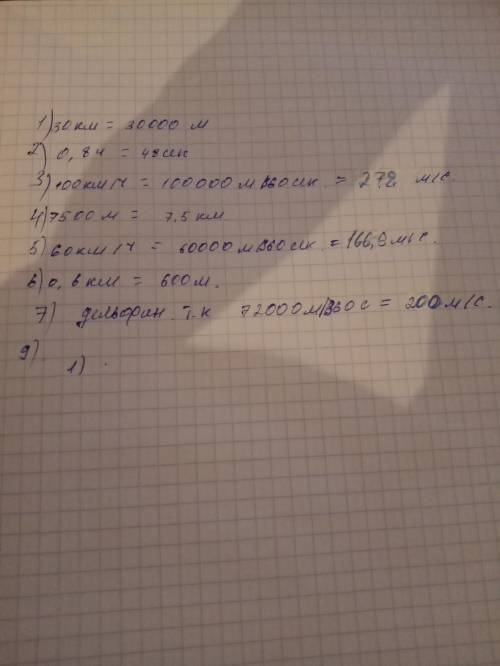 1) 30 км = 30000 м
2) 0,8ч = 48сек
3) 100км/ч = 100000м/360сек = 278 м/с.
4) 7500м = 7,5 км
5) 60км/ч = 60000м/360сек = 166,9м/с.
6) 0,6км = 600м.
7) дельфин. т.к 72000м/360с = 200м/с.
9).
1)